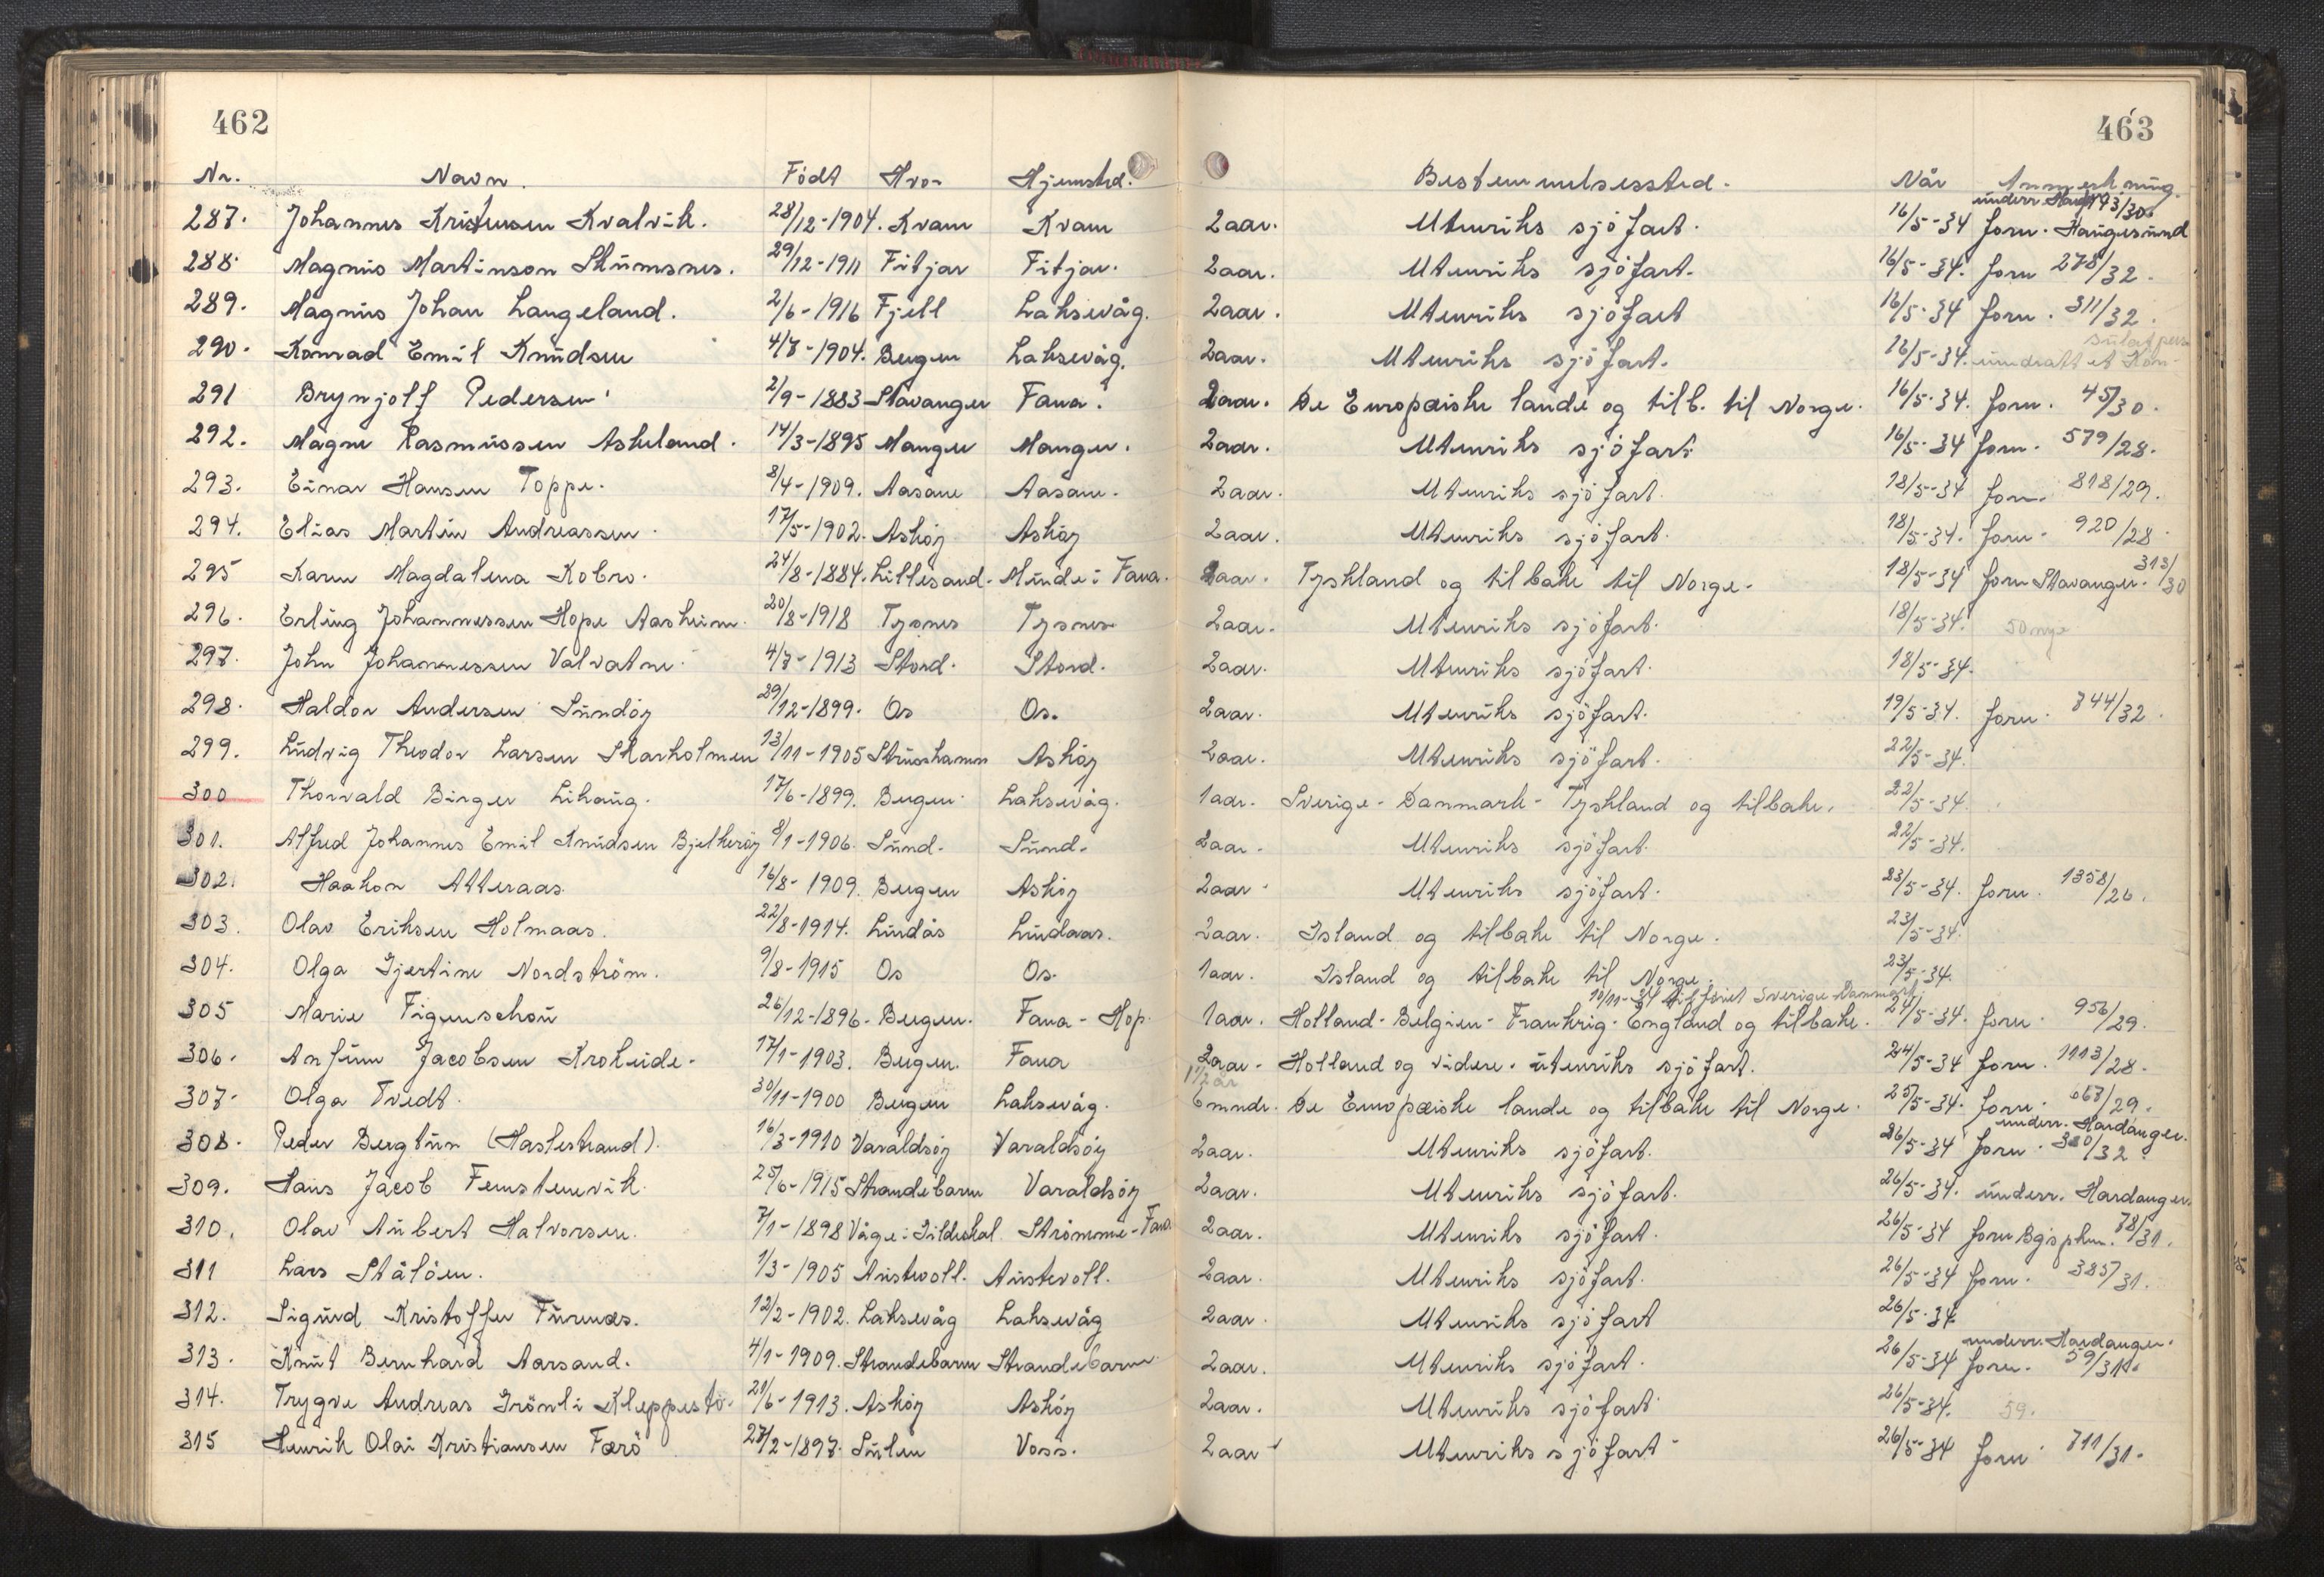 462
463
Nr. Navn. Födt Hvor Hjemsted. Bestemmelsessted. Når Anmerkning.
underr. Haug 193/30.
287. Johannes Kristensen Kvalvik. 28/12-1904. Kvam Kvam 2 aar. Utenriks sjöfart. 16/5-34 forn. Haugesund
288. Magnus Martinson Stumsnes. 29/12-1911 Fitjar Fitjar. 2 aar. Utenriks sjöfart. 16/5-34. forn 278/32.
289. Magnus Johan Langeland. 2/6-1916 Fjell Laksevåg. 2 aar. Utenriks sjöfart 16/5-34 forn. 311/32.
290. Konrad Emil Knudsen 4/7-1904. Bergen Laksevåg. 2 aar. Utenriks sjöfart. 16/5-34.
291 Brynjolf Pedersen 2/9-1883 Stavanger Fana. 2 aar. De Europæiske lande og tilb. til Norge. 16/5-34. forn. 45/30.
292. Magne Rasmussen Askeland. 14/3-1895 Manger Manger. 2 aar. Utenriks sjöfart 16/5-34 forn. 579/28.
293. Einar Hansen Toppe. 8/4-1909. Aasane Aasane. 2 aar. Utenriks sjöfart. 18/5-34 forn. 818/29.
294. Elias Martin Andreassen. 17/5-1902. Asköy Asköy 2 aar. Utenriks sjöfart. 18/5-34. forn. 920/28.
295 Karen Magdalena Kobro. 24/8-1884. Lillesand. Minde i Fana. 2 aar. Tyskland og tilbake til Norge. 18/5-34 forn Stavanger. 313/30
296. Erling Johannessen Hope Aasheim. 20/8-1918 Tysnes Tysnes 2 aar. Utenriks sjöfart. 18/5-34. 50 mye
297. John Johannessen Valvatne. 4/7-1913 Stord. Stord. 2 aar. Utenriks sjöfart. 18/5-34.
298. Haldor Andersen Sundöy 29/12-1899. Os Os. 2 aar. Utenriks sjöfart. 19/5-34. forn. 744/32.
299. Ludvig Theodor Larsen Skarholmen 13/11-1905 Strusshamn Asköy 2 aar. Utenriks sjöfart. 22/5-34.
300 Thorvald Birger Lihaug. 17/6-1899. Bergen Laksevåg. 1 aar. Sverige-Danmark-Tyskland og tilbake. 22/5-34.
301. Alfred Johannes Emil Knudsen Bjelkeröy 8/1-1906. Sund. Sund. 2 aar. Utenriks sjöfart. 22/5-34.
302. Haakon Atteraas. 16/8-1909. Bergen Asköy 2 aar. Utenriks sjöfart. 23/5-34. forn. 1358/26.
303. Olav Eriksen Holmaas. 22/8-1914. Lindås Lindaas. 2 aar. Island og tilbake til Norge. 23/5-34.
304. Olga Gjertine Nordström. 9/8-1915 Os Os. 1 aar. Island og tilbake til Norge. 23/5-34.
10/11-34 tilföiet Sverige Danmark.
305 Marie Figenschou 26/12-1896. Bergen. Fana-Hop. 1 aar. Holland-Belgien-Frankrig-England og tilbake. 24/5-34. forn. 956/29.
306. Anfinn Jacobsen Krokeide. 17/1-1903. Bergen. Fana 2 aar. Holland og videre i utenriks sjöfart. 24/5-34 forn. 1113/28.
1 1/2 år
307. Olga Tvedt. 30/11-1900 Bergen Laksevåg. 6 mndr. De Europæiske lande og tilbake til Norge. 25/5-34. forn. 067/29.
underr. Hardanger.
308. Peder Bergtun (Hastestrand). 16/3-1910 Varaldsöy Varaldsöy 2 aar. Utenriks sjöfart. 26/5-34 forn. 320/32.
309. Hans Jacob Femstenevik. 25/6-1915 Strandebarm Varaldsöy 2 aar. Utenriks sjöfart. 26/5-34. underr. Hardanger.
310. Olav Aubert Halvorsen. 7/1-1898 Våge i Gildeskal Strömme-Fana 2 aar. Utenriks sjöfart. 26/5-34 forn Bgs phm. 78/31.
311 Lars Stålöen. 1/3-1905 Austevoll. Austevoll. 2 aar. Utenriks sjöfart. 26/5-34 forn. 385/31.
312. Sigurd Kristoffer Furenæs. 12/2-1902. Laksevåg Laksevåg 2 aar. Utenriks sjöfart 26/5-34.
underr. Hardanger.
313. Knut Bernhard Aarsand. 4/1-1909. Strandebarm Strandebarm 2 aar. Utenriks sjöfart. 26/5-34 forn. 59/31.
314. Trygve Andreas Grönli Kleppestö. 21/6-1913. Asköy Asköy 2 aar. Utenriks sjöfart. 26/5-34. 59.
315 Henrik Olai Kristiansen Færö 27/2-1897. Sulen Voss. 2 aar Utenriks sjöfart 26/5-34 forn 711/31.